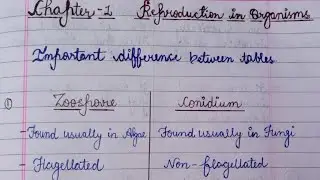 Chapter-1 Reproduction in Organisms
Important difference between tables
① Zoospore Conidium
- Found usually in Algae Found usually in Fungi
- Flagellated Non-flagellated